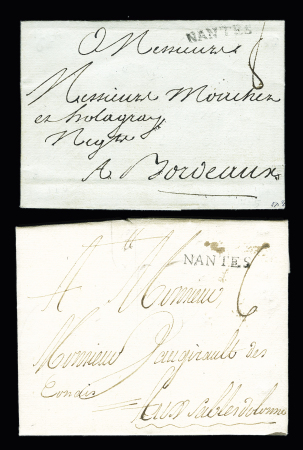 NANTES
A Messieurs
8
Messieurs Mouchen
et holagray
Negts
A Bordeaux
NANTES
A Monsieur
6
Monsieur Daugirault des
Condis
aux sables dolonne